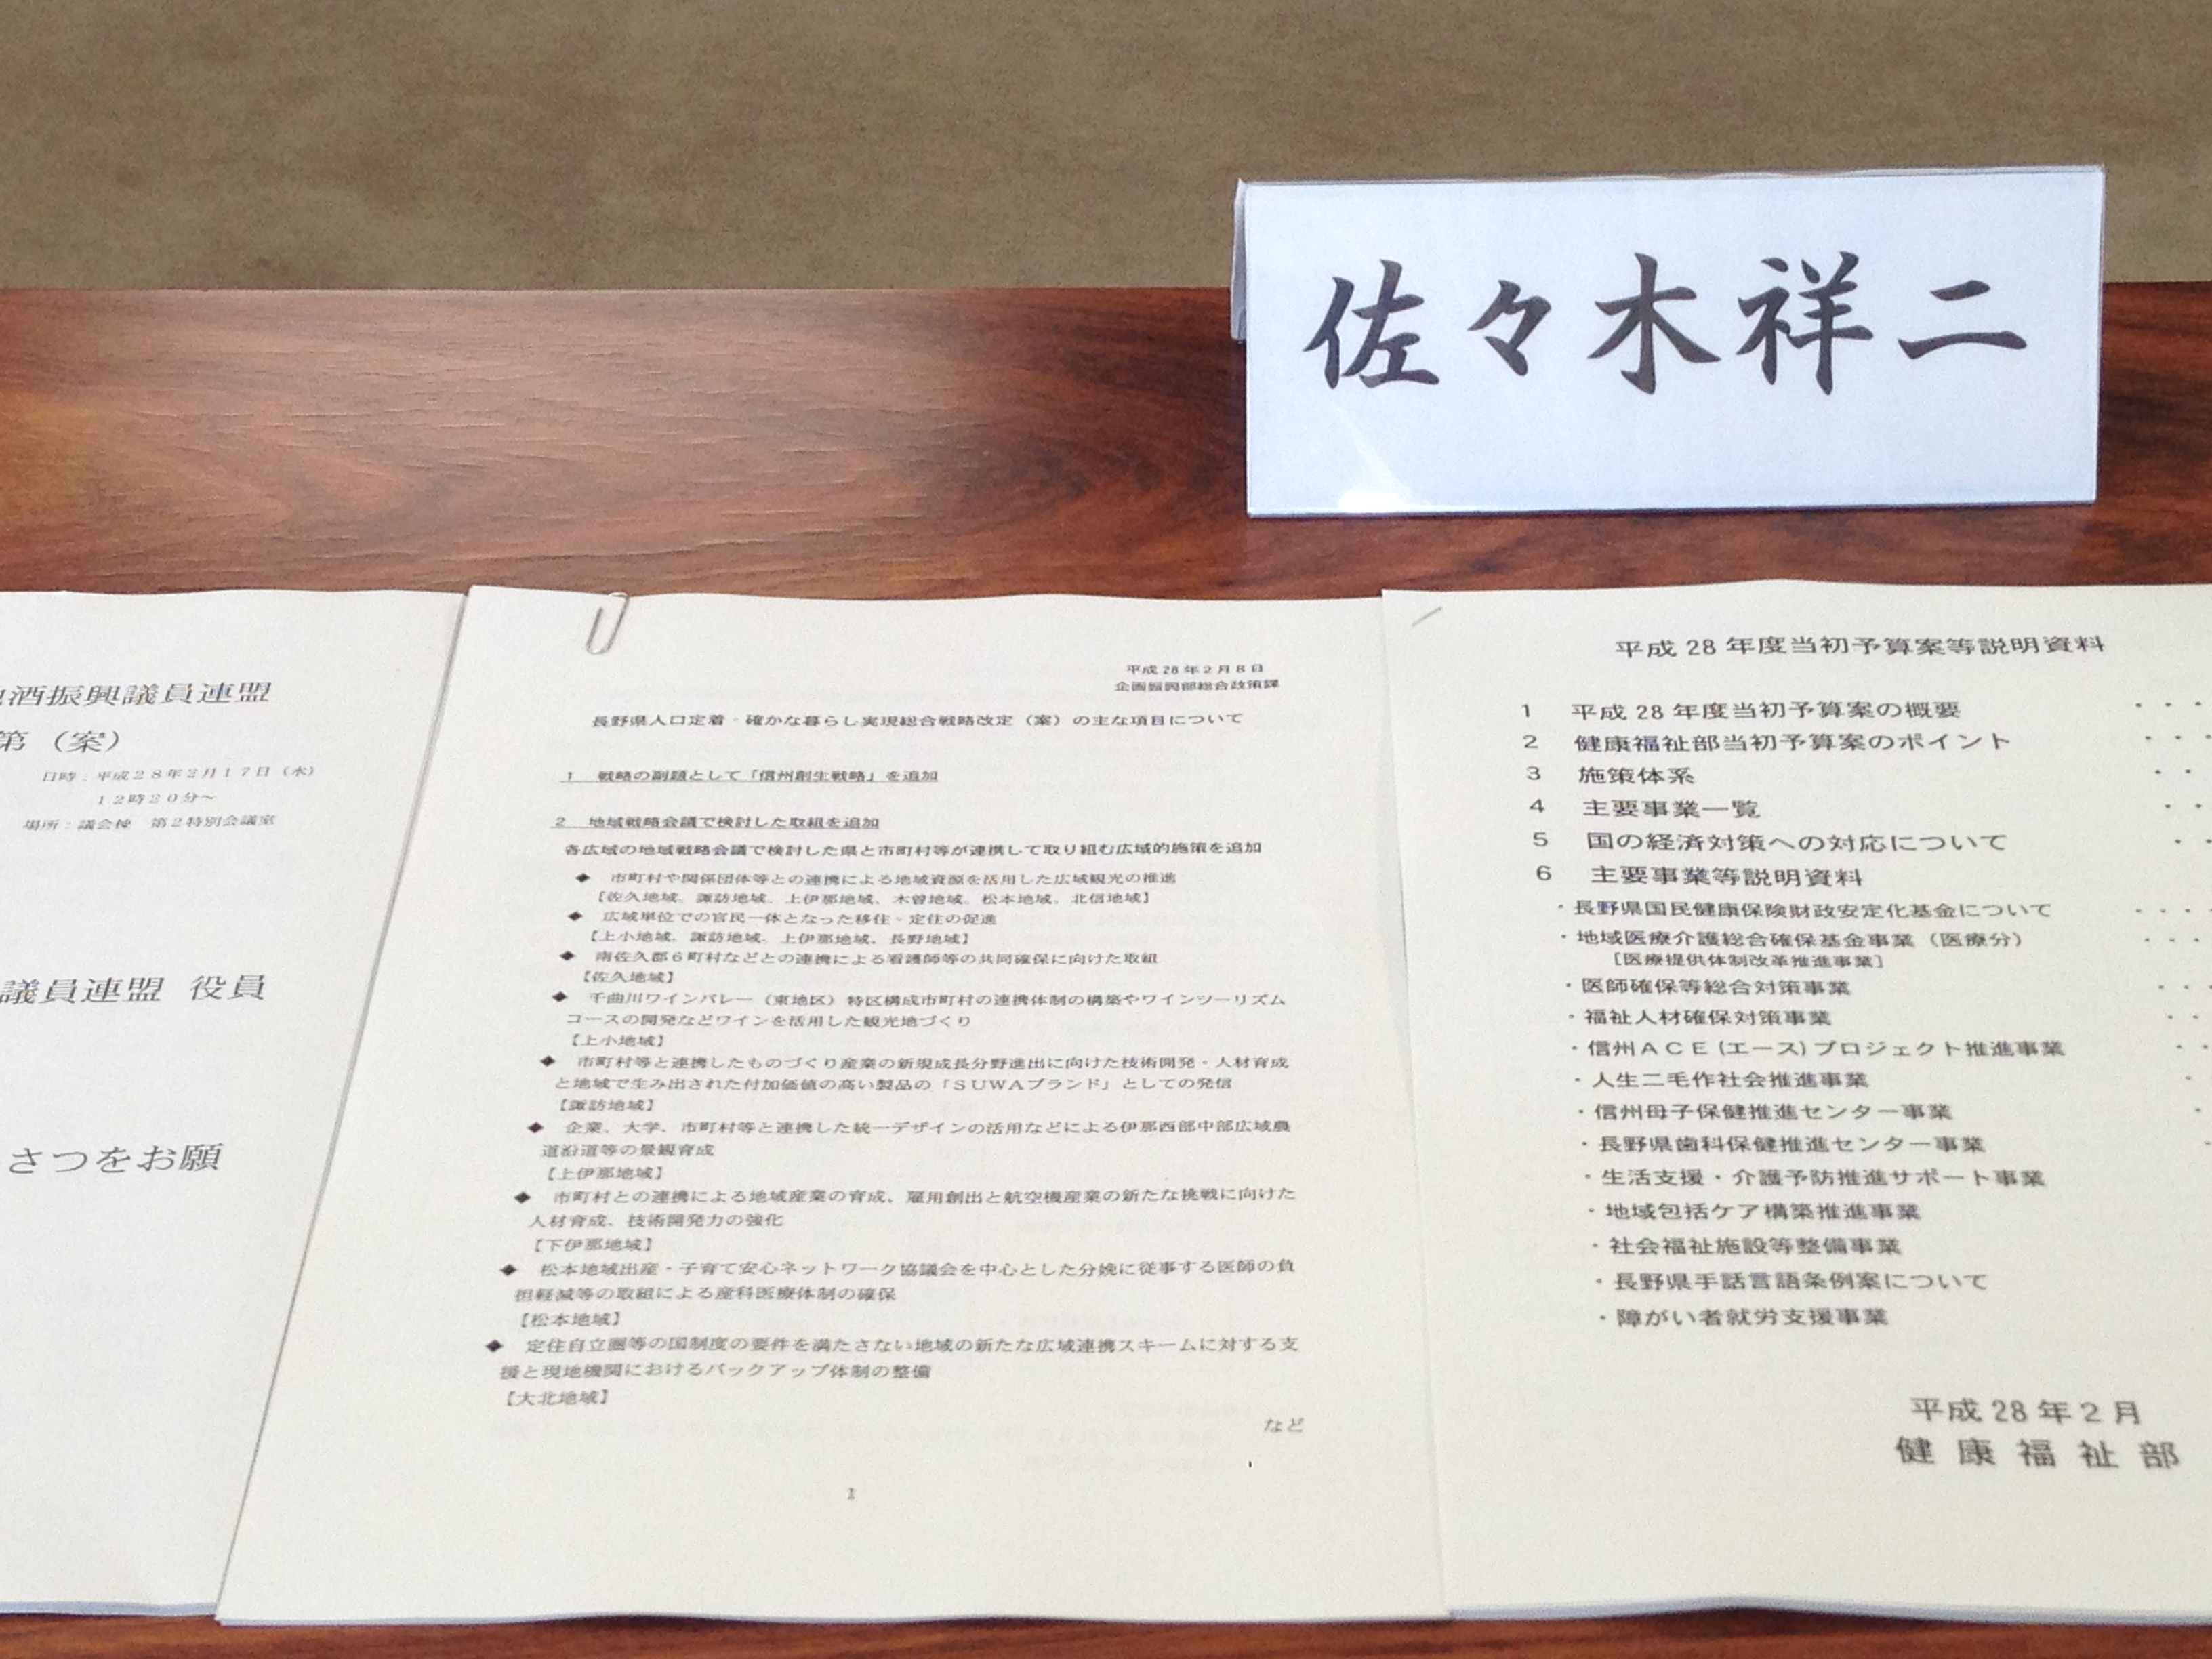 佐々木祥二
酒振興議員連盟
第（案）
日時：平成２８年２月１７日（水）
１２時２０分～
場所：議会棟　第２特別会議室
議員連盟 役員
さつをお願
平成 28 年 2 月 8 日
企画振興部総合政策課
長野県人口定着・確かな暮らし実現総合戦略改定（案）の主な項目について
１　戦略の副題として「信州創生戦略」を追加
２　地域戦略会議で検討した取組を追加
各広域の地域戦略会議で検討した県と市町村等が連携して取り組む広域的施策を追加
◆　市町村や関係団体等との連携による地域資源を活用した広域観光の推進
【佐久地域、諏訪地域、上伊那地域、木曽地域、松本地域、北信地域】
◆　広域単位での官民一体となった移住・定住の促進
【上小地域、諏訪地域、上伊那地域、長野地域】
◆　南佐久郡６町村などとの連携による看護師等の共同確保に向けた取組
【佐久地域】
◆　千曲川ワインバレー（東地区）特区構成市町村の連携体制の構築やワインツーリズム
コースの開発などワインを活用した観光地づくり
【上小地域】
◆　市町村等と連携したものづくり産業の新規成長分野進出に向けた技術開発・人材育成
と地域で生み出された付加価値の高い製品の「ＳＵＷＡブランド」としての発信
【諏訪地域】
◆　企業、大学、市町村等と連携した統一デザインの活用などによる伊那西部中部広域農
道沿道等の景観育成
【上伊那地域】
◆　市町村との連携による地域産業の育成、雇用創出と航空機産業の新たな挑戦に向けた
人材育成、技術開発力の強化
【下伊那地域】
◆　松本地域出産・子育て安心ネットワーク協議会を中心とした分娩に従事する医師の負
担軽減等の取組による産科医療体制の確保
【松本地域】
◆　定住自立圏等の国制度の要件を満たさない地域の新たな広域連携スキームに対する支
援と現地機関におけるバックアップ体制の整備
【大北地域】
など
1
平成 28 年度当初予算案等説明資料
１　平成 28 年度当初予算案の概要　・・・
２　健康福祉部当初予算案のポイント　・・・
３　施策体系　・・
４　主要事業一覧　・・
５　国の経済対策への対応について　・・
６　主要事業等説明資料
・長野県国民健康保険財政安定化基金について　・・・・
・地域医療介護総合確保基金事業（医療分）　・・・
［医療提供体制改革推進事業］
・医師確保等総合対策事業　・・・
・福祉人材確保対策事業　・・
・信州ＡＣＥ(エース)プロジェクト推進事業　・・
・人生二毛作社会推進事業　・
・信州母子保健推進センター事業　・
・長野県歯科保健推進センター事業　・
・生活支援・介護予防推進サポート事業
・地域包括ケア構築推進事業
・社会福祉施設等整備事業
・長野県手話言語条例案について
・障がい者就労支援事業
平成 28 年２月
健 康 福 祉 部